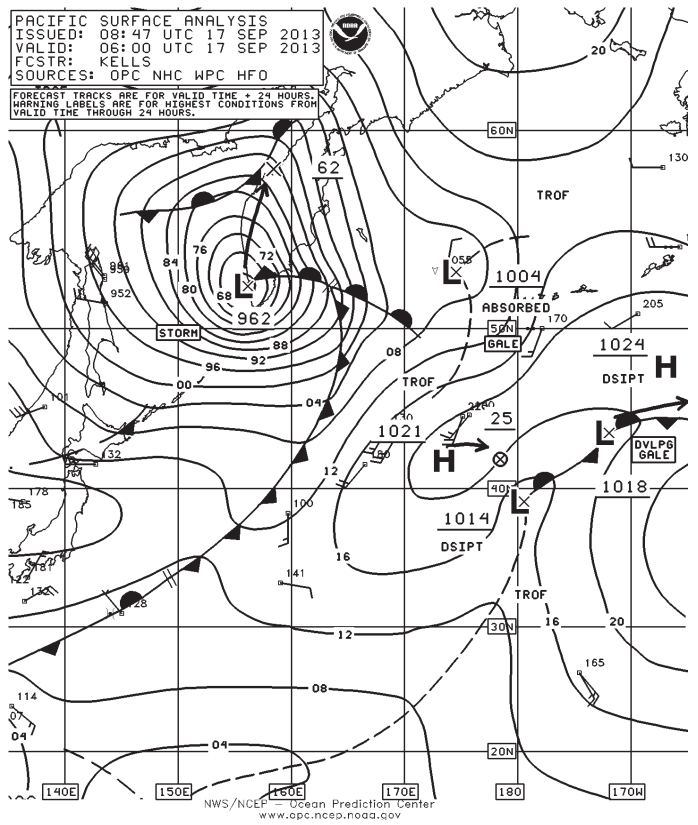 PACIFIC SURFACE ANALYSIS
ISSUED: 08:47 UTC 17 SEP 2013
VALID: 06:00 UTC 17 SEP 2013
FCSTR: KELLS
SOURCES: OPC NHC WPC HFO
NOAA
FORECAST TRACKS ARE FOR VALID TIME + 24 HOURS.
WARNING LABELS ARE FOR HIGHEST CONDITIONS FROM
VALID TIME THROUGH 24 HOURS.
20
60N
62
130
TROF
76
72
84
L
055
1004
80
952
L
68
962
ABSORBED
205
STORM
50N
170
88
GALE
1024
96
92
08
H
DSIPT
00
TROF
101
04
25
1021
L
132
H
DVLPG
GALE
12
178
40N
L
1018
185
100
1014
16
DSIPT
181
141
122
132
TROF
128
12
30N
16
20
165
08
114
07
04
04
20N
140E
150E
160E
170E
180
170W
NWS/NCEP – Ocean Prediction Center
www.opc.ncep.noaa.gov